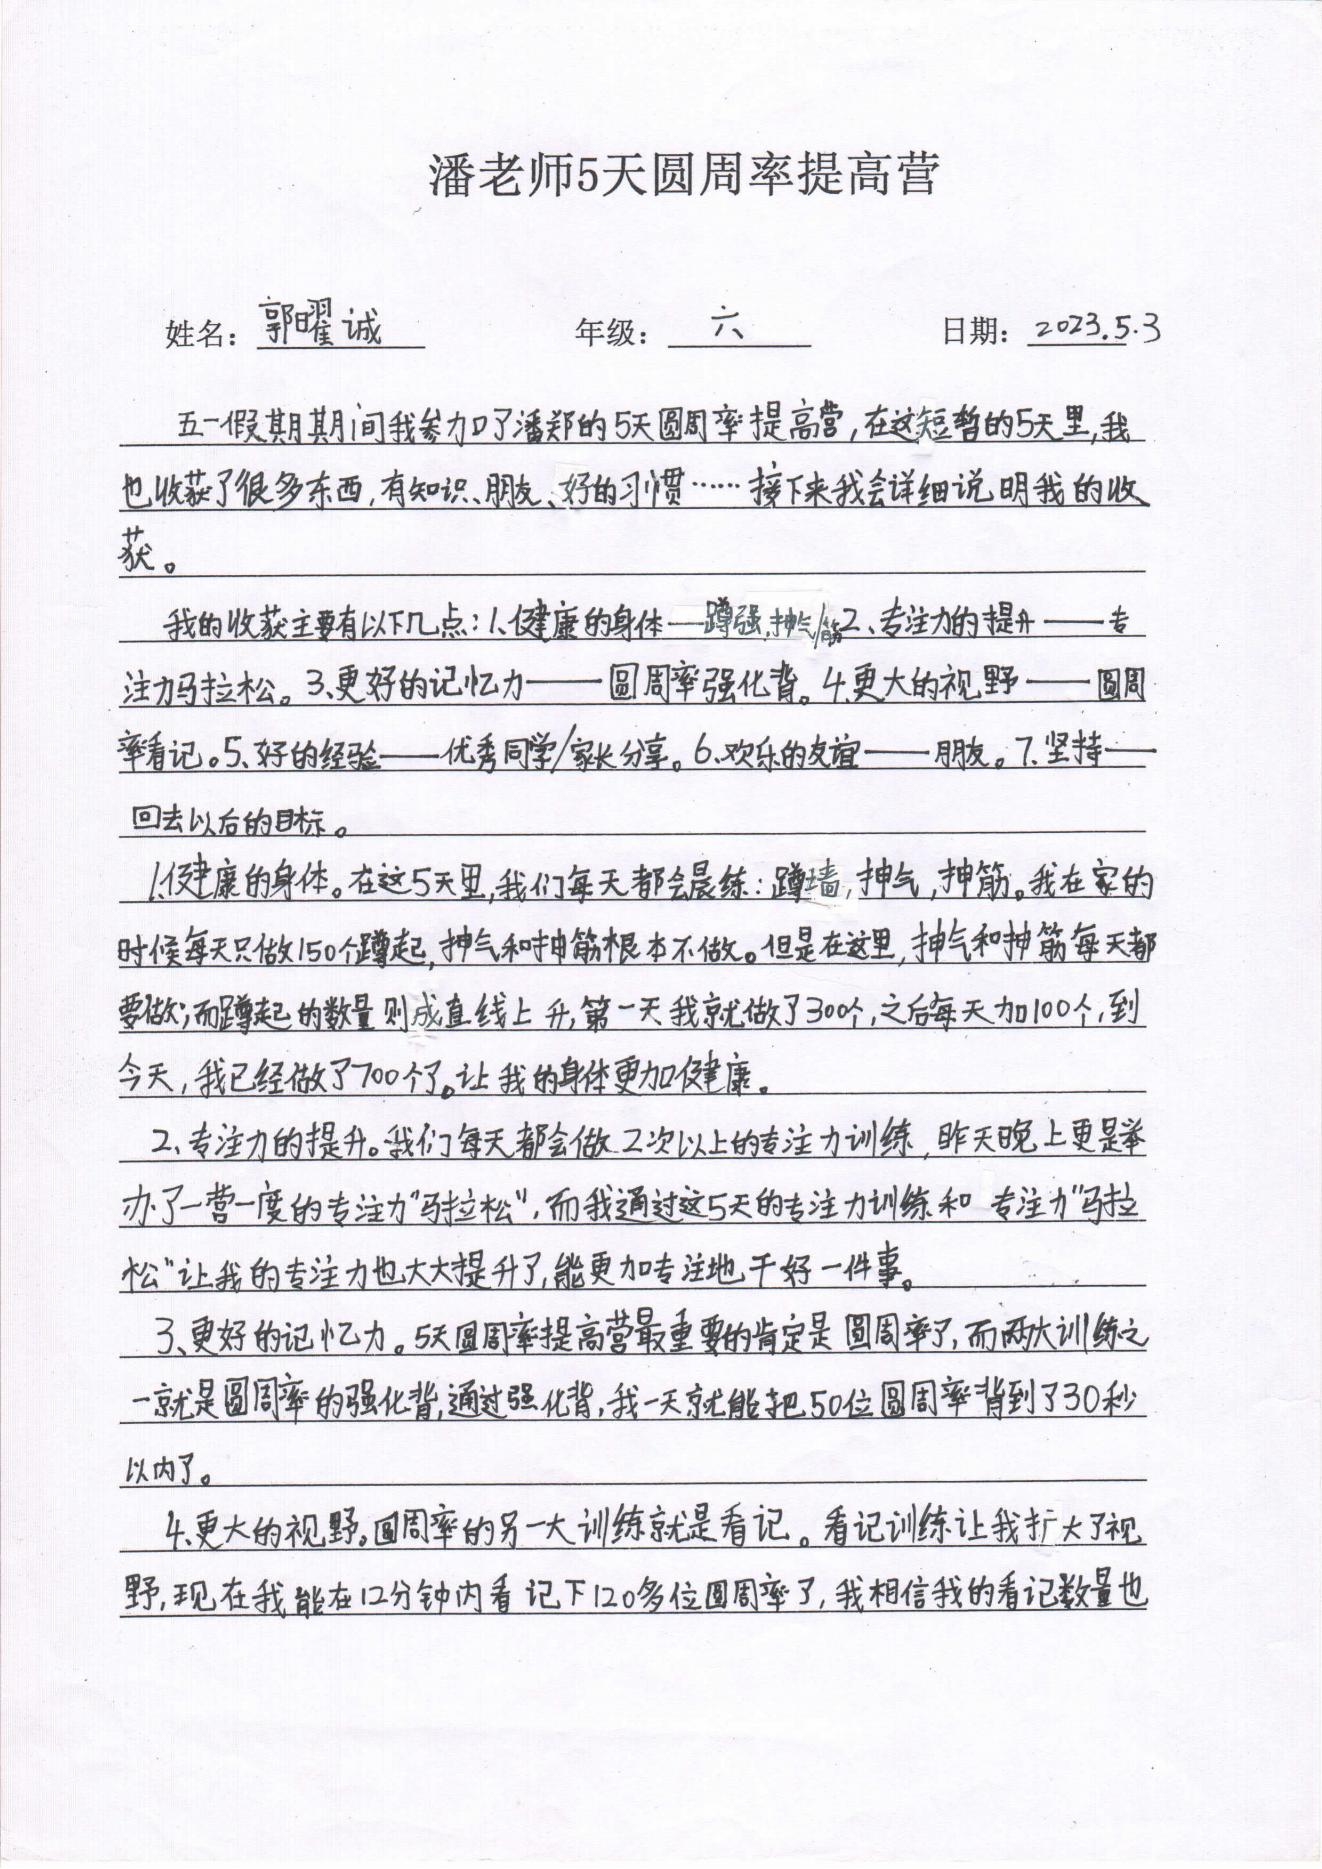 潘老师5天圆周率提高营
姓名：郭曜诚 年级：六 日期：2023.5.3
五一假期期间我参加了潘郑的5天圆周率提高营，在这短暂的5天里，我
也收获了很多东西，有知识、朋友、好的习惯……接下来我会详细说明我的收
获。
我的收获主要有以下几点：1、健康的身体—蹲强，抻气/筋2、专注力的提升——专
注力马拉松。3、更好的记忆力——圆周率强化背。4、更大的视野——圆周
率看记。5、好的经验——优秀同学/家长分享。6、欢乐的友谊——朋友。7、坚持——
回去以后的目标。
1、健康的身体。在这5天里，我们每天都会晨练：蹲墙，抻气，抻筋。我在家的
时候每天只做150个蹲起，抻气和抻筋根本不做。但是在这里，抻气和抻筋每天都
要做；而蹲起的数量则成直线上升，第一天我就做了300个，之后每天加100个，到
今天，我已经做了700个了。让我的身体更加健康。
2、专注力的提升。我们每天都会做2次以上的专注力训练，昨天晚上更是举
办了一营一度的专注力"马拉松"，而我通过这5天的专注力训练和专注力"马拉
松"让我的专注力也大大提升了，能更加专注地干好一件事。
3、更好的记忆力。5天圆周率提高营最重要的肯定是圆周率了，而两大训练之
一就是圆周率的强化背，通过强化背，我一天就能把50位圆周率背到了30秒
以内了。
4、更大的视野。圆周率的另一大训练就是看记。看记训练让我扩大了视
野，现在我能在12分钟内看记下120多位圆周率了，我相信我的看记数量也